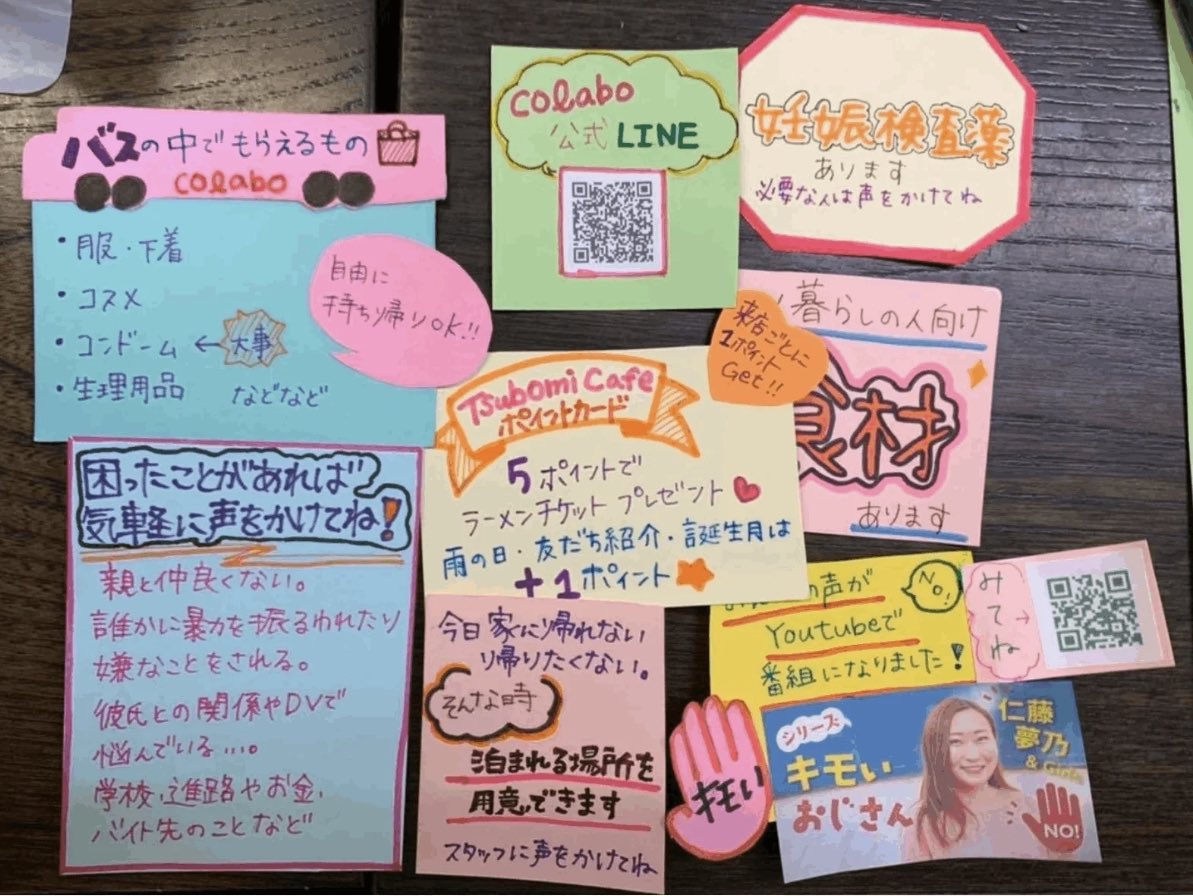 バスの中でもらえるもの
colabo
・服・下着
・コスメ
・コンドーム ← 大事
・生理用品 などなど
自由に
持ち帰りOK!!
colabo
公式 LINE
妊娠検査薬
あります
必要な人は声をかけてね
暮らしの人向け
食材
あります
来店ごとに
1ポイント
Get!!
Tsubomi Cafe
ポイントカード
5ポイントで
ラーメンチケット プレゼント
雨の日・友だち紹介・誕生月は
+1ポイント
困ったことがあれば
気軽に声をかけてね!
親と仲良くない。
誰かに暴力を振るわれたり
嫌なことをされる。
彼氏との関係やDVで
悩んでいる…。
学校、進路やお金、
バイト先のことなど
今日家に帰れない
帰りたくない。
そんな時
泊まれる場所を
用意できます
スタッフに声をかけてね
の声が
NO!
Youtubeで
番組になりました!
みてね→
キモい
シリーズ
キモい
おじさん
仁藤
夢乃
& Girls
NO!